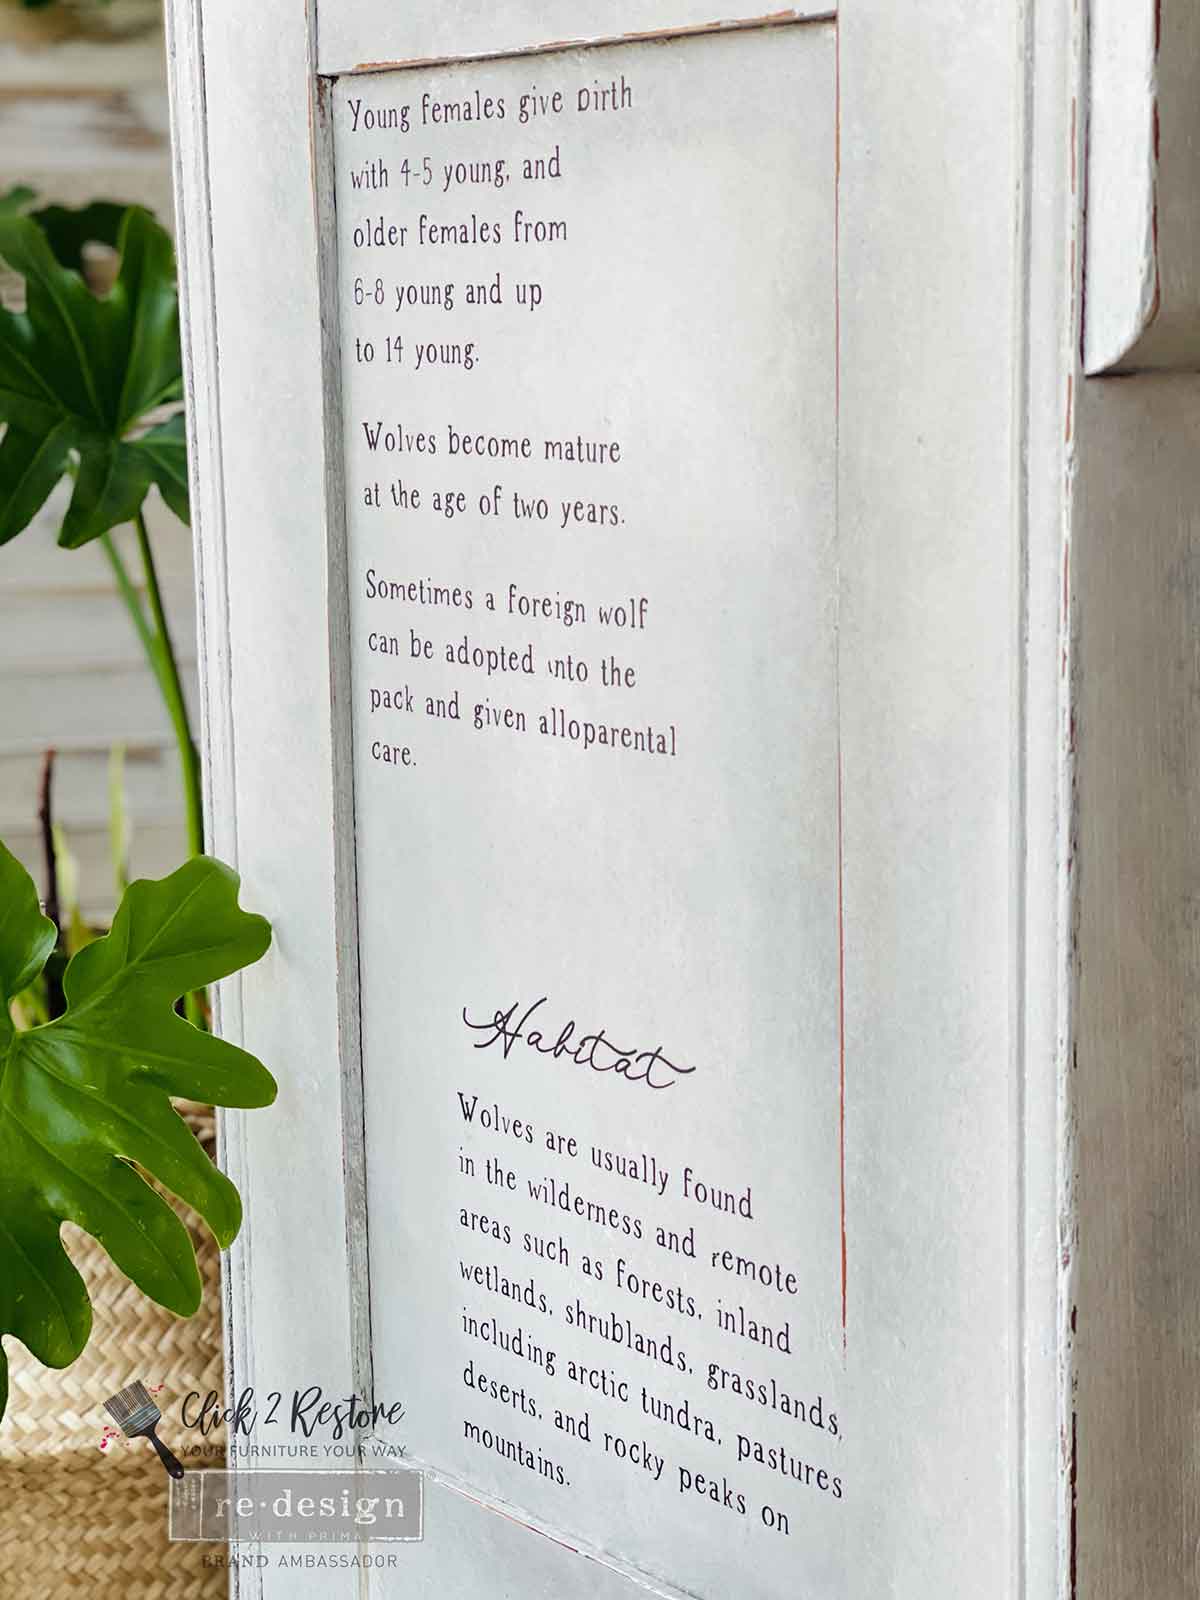 Young females give birth
with 4-5 young, and
older females from
6-8 young and up
to 14 young.
Wolves become mature
at the age of two years.
Sometimes a foreign wolf
can be adopted into the
pack and given alloparental
care.
Habitat
Wolves are usually found
in the wilderness and remote
areas such as forests, inland
wetlands, shrublands, grasslands,
including arctic tundra, pastures
deserts, and rocky peaks on
mountains.
Click 2 Restore
YOUR FURNITURE YOUR WAY
re·design
WITH PRIMA
BRAND AMBASSADOR